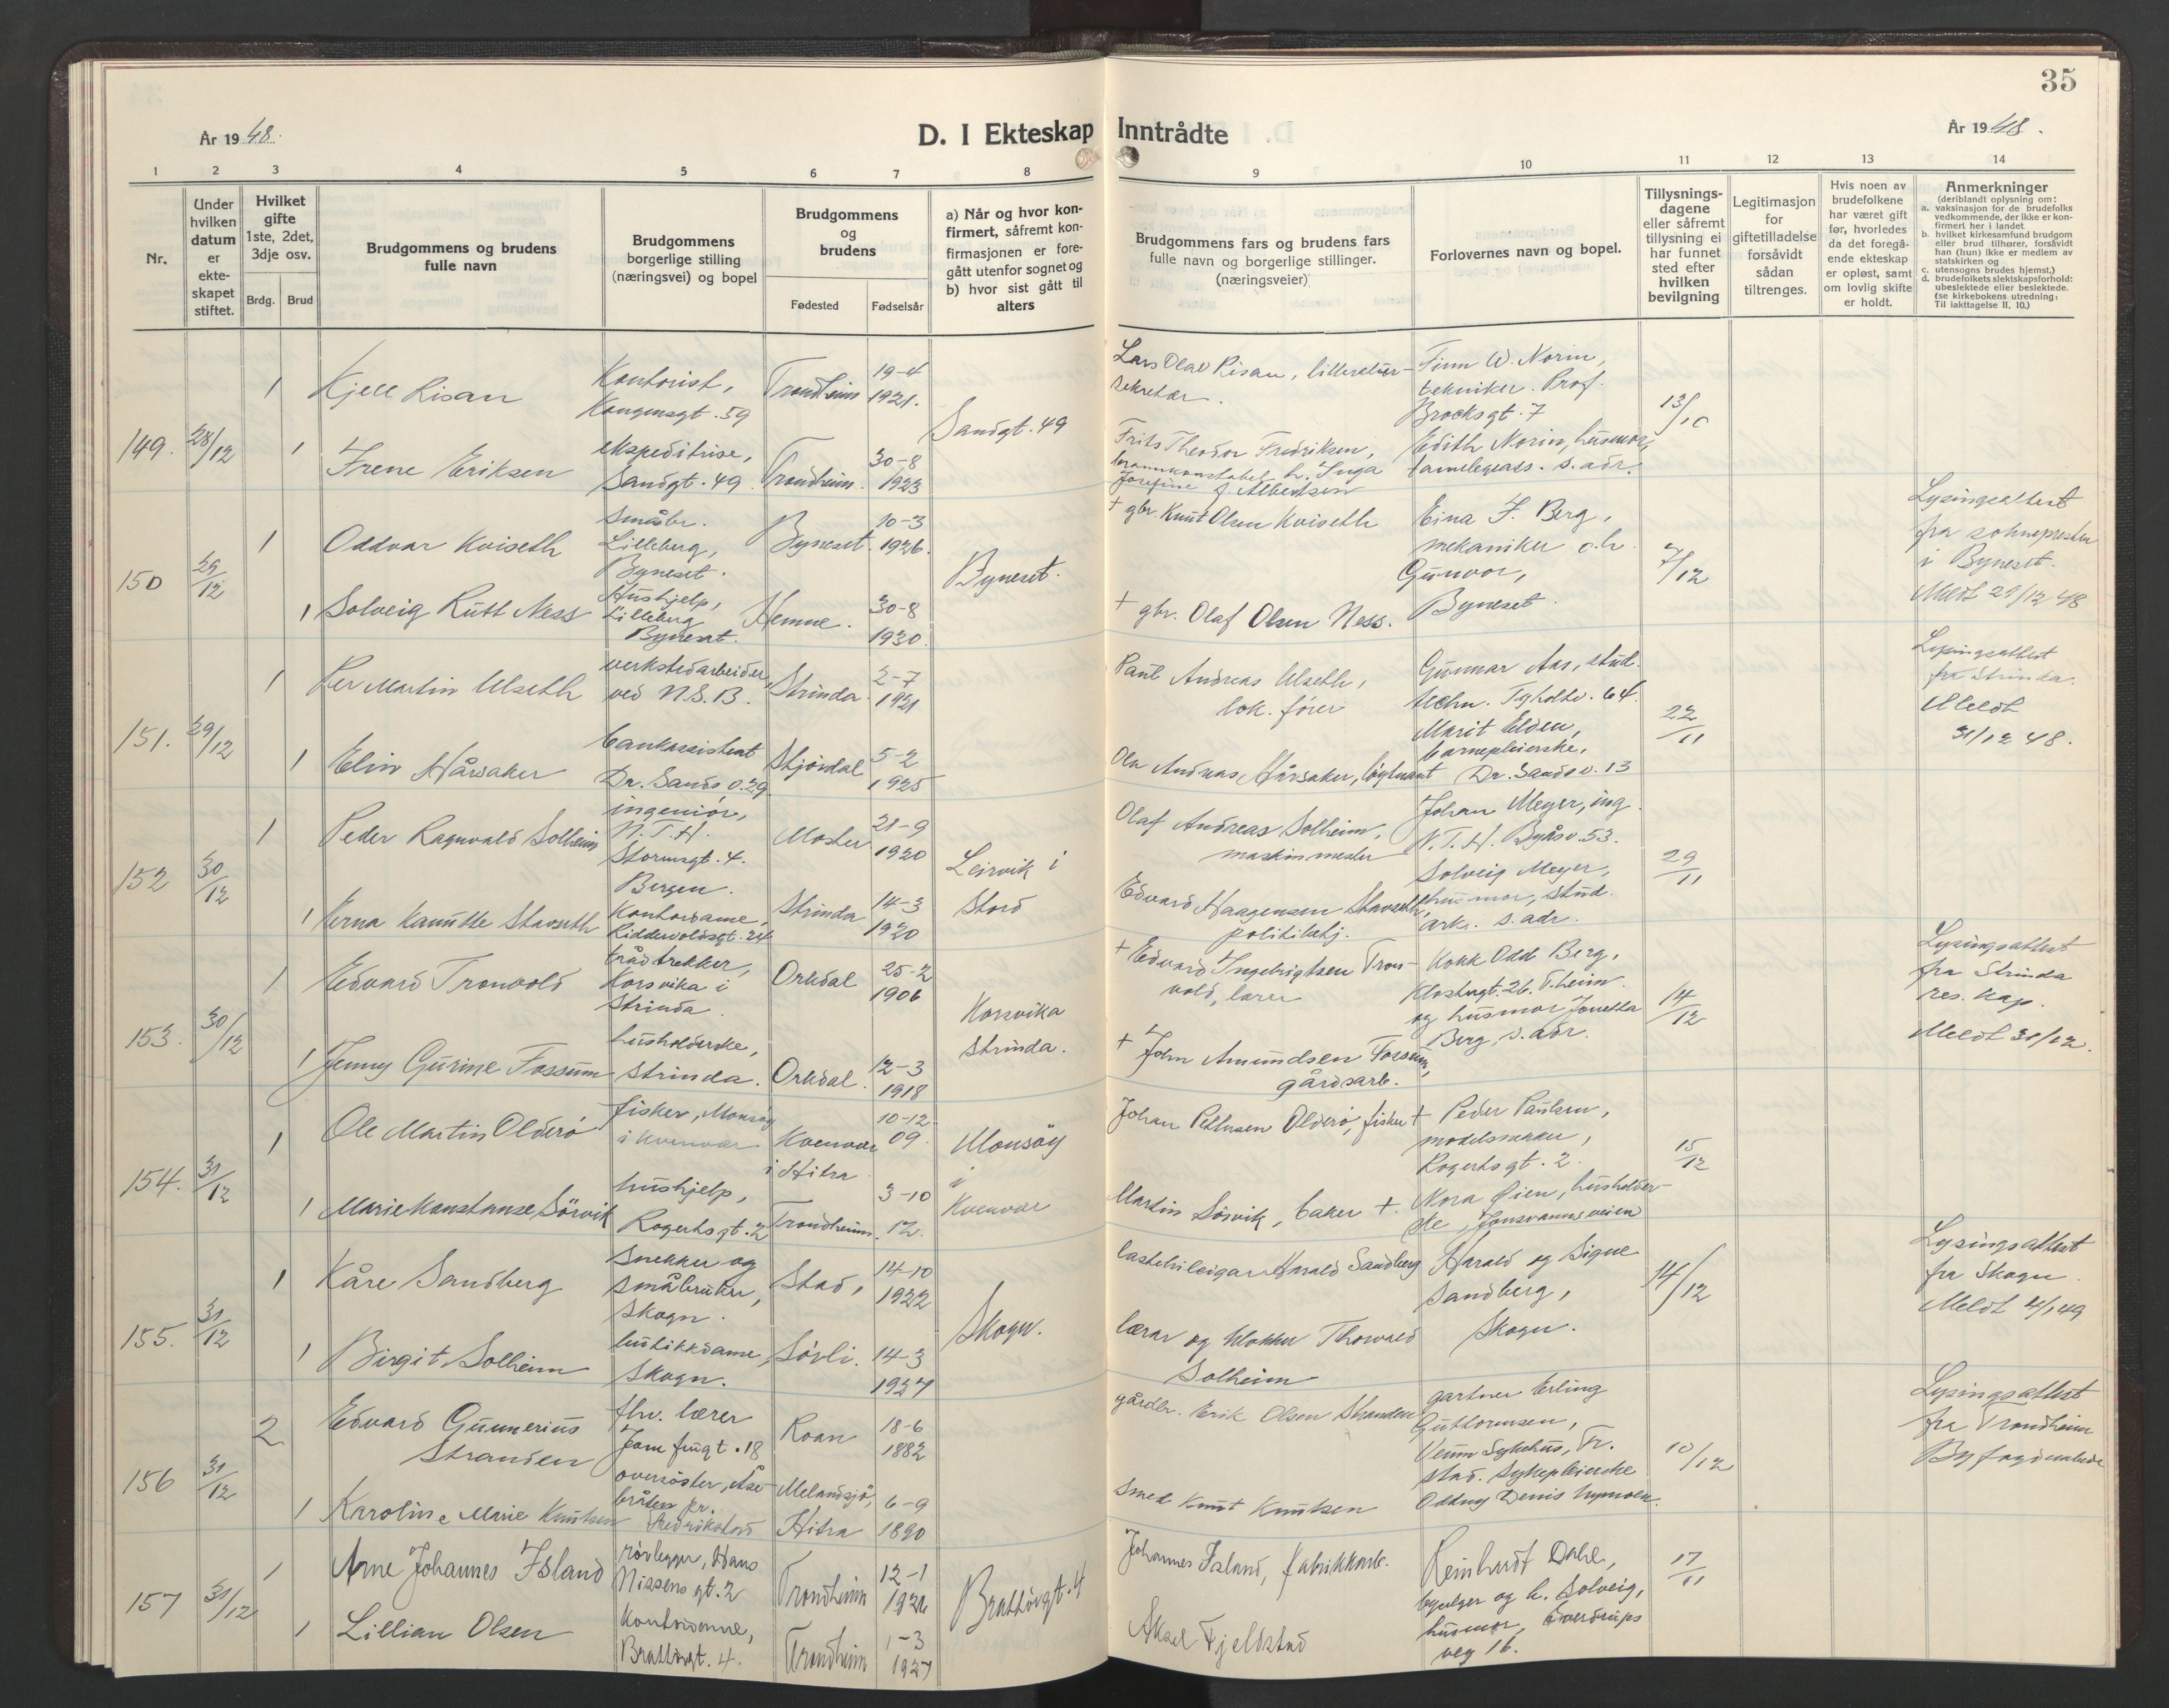 35
År 1948.
D. I Ekteskap Inntrådte
År 1948.
1 2 3 4 5 6 7 8 9 10 11 12 13 14
Nr.
Under hvilken datum er ekte-skapet stiftet.
Hvilket gifte 1ste, 2det, 3dje osv.
Brdg. Brud
Brudgommens og brudens fulle navn
Brudgommens borgerlige stilling (næringsvei) og bopel
Brudgommens og brudens
Fødested Fødselsår
a) Når og hvor kon-firmert, såfremt kon-firmasjonen er fore-gått utenfor sognet og b) hvor sist gått til alters
Brudgommens fars og brudens fars fulle navn og borgerlige stillinger. (næringsveier)
Forlovernes navn og bopel.
Tillysnings-dagene eller såfremt tillysning ei har funnet sted efter hvilken bevilgning
Legitimasjon for giftetilladelse forsåvidt sådan tiltrenges.
Hvis noen av brudefolkene har været gift før, hvorledes da det foregå-ende ekteskap er opløst, samt om lovlig skifte er holdt.
Anmerkninger (deriblandt oplysning om:
a. vaksinasjon for de brudefolks vedkommende, der ikke er kon-firmert her i landet
b. hvilket kirkesamfund brudgom eller brud tilhører, forsåvidt han (hun) ikke er medlem av statskirken og
c. utensogns brudes hjemst.)
d. brudefolkets slektskapsforhold: ubeslektede eller beslektede. (se kirkebokens utredning: Til iakttagelse II, 10.)
149. 28/12
1 Kjell Risan
Kontorist,
Kongensgt. 59
Trondheim
19-4
1921.
Sandgt. 49
Lars Olav Risan, litteratur-
sekretær.
Finn W. Norin,
tekniker. Prof.
Brocksgt. 7
13/10
1 Irene Eriksen
ekspeditrise,
Sandgt. 49
Trondheim.
30-8
1923
Frits Theodor Fredriksen,
brannkonstabel, h. Inga
Josefine f. Albertsen
Edith Norin, husmor,
s. adr.
150 29/12
1 Oddvar Kviseth
småbr.
Lilleberg,
Byneset.
Byneset.
10-3
1926.
Byneset.
+ gbr. Knut Olsen Kviseth
Eina J. Berg,
mekaniker o.h.
Gunvor,
Byneset.
7/12
Lysingsattest
fra soknepresten
i Byneset.
Meldt 29/12 48
1 Solveig Rutt Ness
Hushjelp,
Lilleberg
Byneset.
Hemne.
30-8
1930.
+ gbr. Olaf Olsen Ness.
151. 29/12
1 Per Martin Ulseth
verkstedarbeider
ved N.S.B.
Strinda.
2-7
1921
Paul Andreas Ulseth,
lok. fører
Gunnar Aas, stud.
techn. Tyholtv. 64.
Marit Elden,
barnepleierske,
Dr. Sands v. 13
22/11
Lysingsattest
fra Strinda.
Meldt
31/12 48.
1 Elin Hårsaker
bankassistent
Dr. Sands v. 29
Stjørdal
5-2
1925
Ola Andreas Hårsaker, løytnant
152 30/12
1 Peder Ragnvald Solheim
ingeniør,
N.T.H.
Stormsgt. 4.
Bergen.
Moster
21-9
1920
Leirvik i
Stord
Olaf Andreas Solheim,
maskinmester
Johan Meyer, ing.
N.T.H. Byåsv. 53.
Solveig Meyer,
husmor, stud.
ark. s. adr.
29/11
1 Erna Kamille Stavseth
Kontordame,
Riddervoldsgt. 24
Strinda
14-3
1920
Edvard Haagensen Stavseth,
politibetj.
153. 30/12
1 Edvard Tronvold
trådtrekker,
Korsvika i
Strinda.
Orkdal
25-2
1906
Korsvika
Strinda.
+ Edvard Ingebrigtsen Tron-
vold, lærer
Kokk Odd Berg,
Klostergt. 26. T.heim.
og husmor Jonetta
Berg, s. adr.
14/12
Lysingsattest
fra Strinda
res. kap.
Meldt 31/12.
1 Jenny Gurine Fossum
husholderske,
Strinda.
Orkdal.
12-3
1918
+ John Amundsen Fossum,
gårdsarb.
154. 31/12
1 Ole Martin Olderø
fisker, Monsøy
i Kvenvær
Kvenvær
i Hitra.
10-12
09.
Monsøy
i
Kvenvær
Johan Petersen Olderø, fisker +
Peder Paulsen,
modelsnekker,
Rogertsgt. 2.
15/12
1 Marie Konstanse Sørvik
hushjelp,
Rogertsgt. 2
Trondheim.
3-10
12.
Martin Sørvik, baker +.
Nora Øien, husholder-
ske, Jonsvannsveien
155. 31/12
1 Kåre Sandberg
Snekker og
småbruker,
Skogn.
Stod,
14-10
1922
Skogn.
lastebileigar Harald Sandberg
Harald og Signe
Sandberg,
Skogn.
14/12
Lysingsattest
fra Skogn.
Meldt 4/1 49
1 Birgit Solheim
butikkdame
Skogn.
Sørli.
14-3
1927
lærar og klokker Thorvald
Solheim
156 31/12
2 Edvard Gunnerius
Stranden
fhv. lærer
Jomfrugt. 18
Roan
18-6
1882
gårdbr. Erik Olsen Stranden
gartner Erling
Guttormsen,
Veum Sykehus, Fr.
stad. Sykepleierske
Oddny Denis
10/12
Lysingsattest
fra Trondheim
1 Karoline Marie Knutsen
oversøster, Åse-
bråten pr.
Fredrikstad
Melandsjø,
Hitra
6-9
1890
Smed Knut Knutsen
157 31/12
1 Arne Johannes Island
rørlegger, Hans
Nissens gt. 2
Trondheim
12-1
1926
Brattørgt. 4
Johannes Island, fabrikkarb.
Reinhardt Dahl,
og h. Solveig,
husmor, Everdrups
veg 16.
17/11
1 Lillian Olsen
Kontordame,
Brattørgt. 4.
Trondheim
1-3
1927
Aksel Fjeldstad